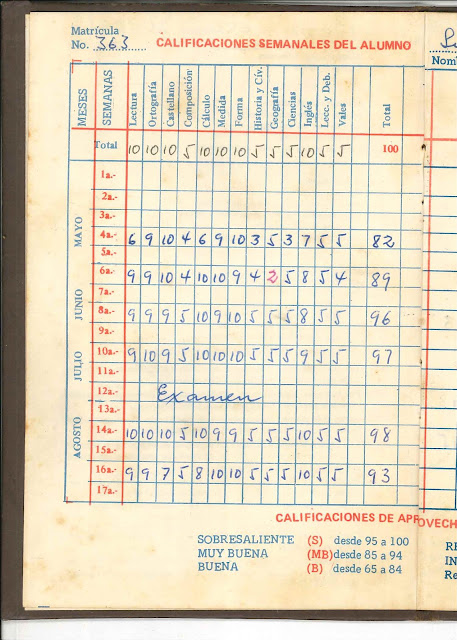 Matrícula
No. 363
CALIFICACIONES SEMANALES DEL ALUMNO
Nom
MESES SEMANAS Lectura Ortografía Castellano Composición Cálculo Medida Forma Historia y Cív. Geografía Ciencias Inglés Lecc. y Deb. Vales Total
Total 10 10 10 5 10 10 10 5 5 5 10 5 5 100
MAYO
1a.-
2a.-
3a.-
4a.- 6 9 10 4 6 9 10 3 5 3 7 5 5 82
5a.-
JUNIO
6a.- 9 9 10 4 10 10 9 4 2 5 8 5 4 89
7a.-
8a.- 9 9 9 5 10 9 10 5 5 5 8 5 5 96
9a.-
JULIO
10a.- 9 10 9 5 10 10 10 5 5 5 9 5 5 97
11a.-
12a.- Examen
13a.-
AGOSTO
14a.- 10 10 10 5 10 9 9 5 5 5 10 5 5 98
15a.-
16a.- 9 9 7 5 8 10 10 5 5 5 10 5 5 93
17a.-
CALIFICACIONES DE APROVECH
SOBRESALIENTE (S) desde 95 a 100
MUY BUENA (MB) desde 85 a 94
BUENA (B) desde 65 a 84
RE
IN
Re